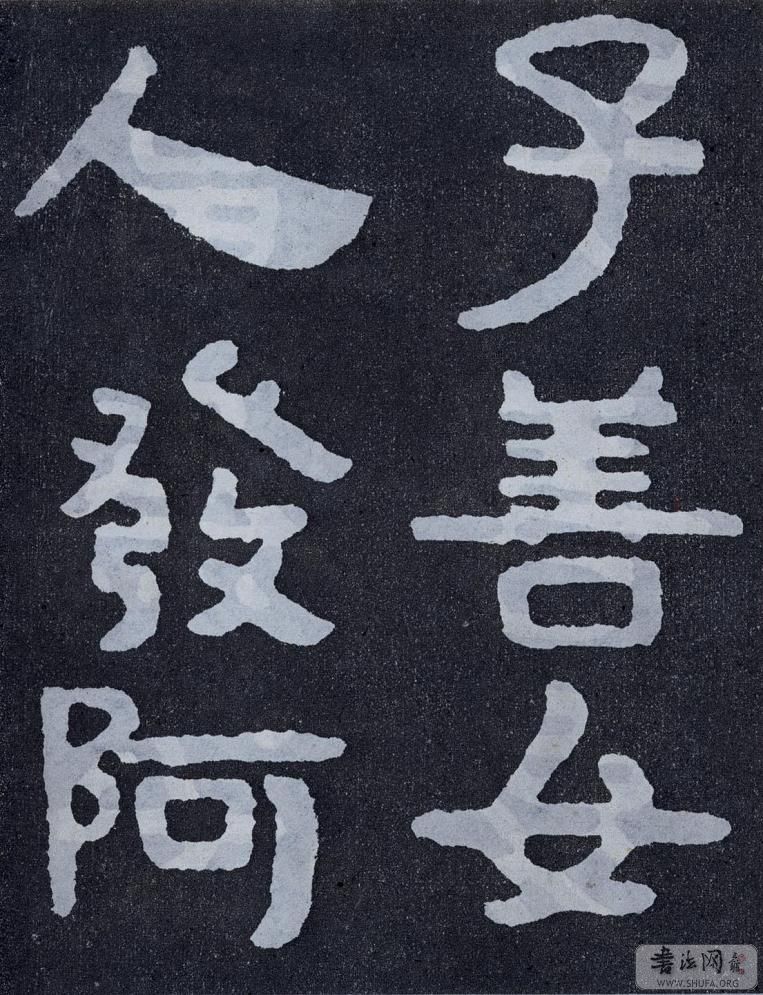 子善女
人發阿
書法网
WWW.SHUFA.ORG